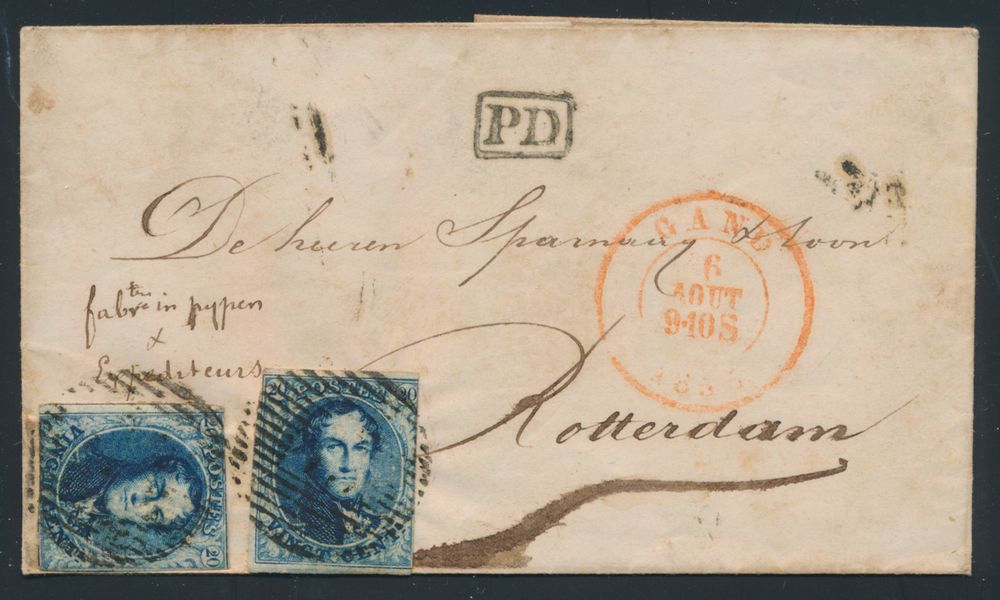 PD
De heeren Spamaay & Zoon
GAND
6
AOUT
9-10S
185
fabrten in pypen
&
Expediteurs
Rotterdam
20 POSTES 20
VINGT CENT
POSTES 20
VINGT CEN